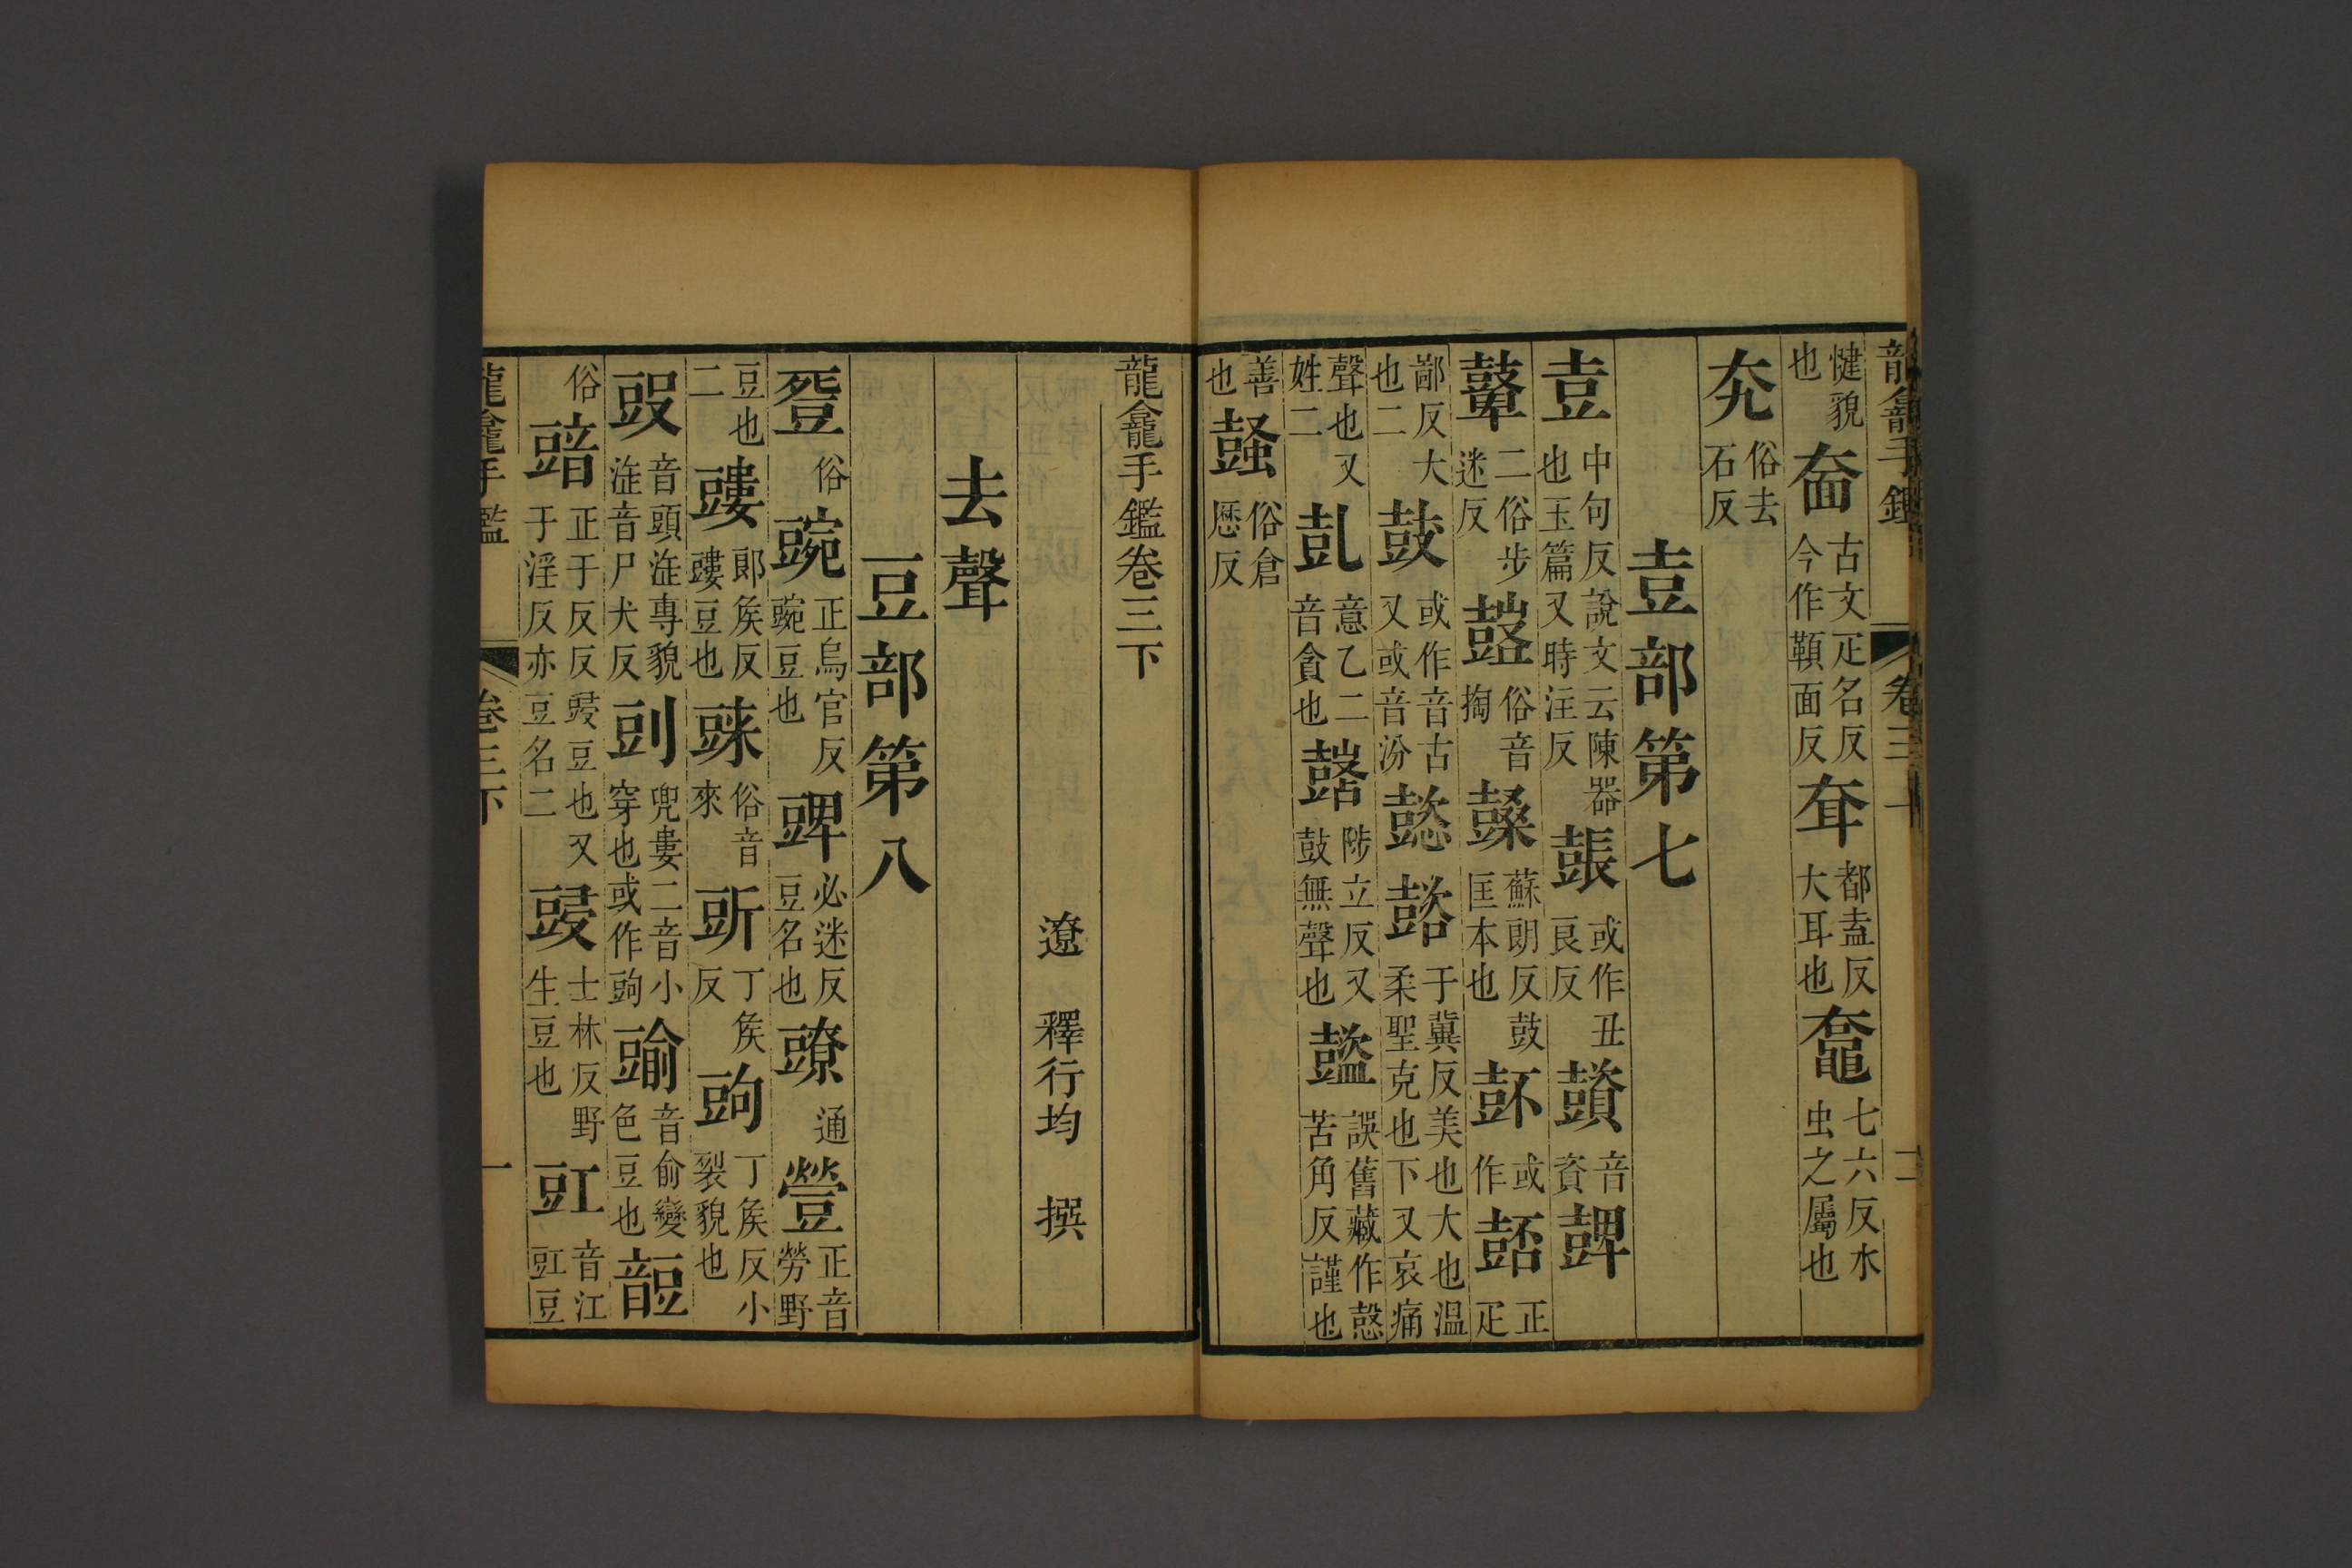 龍龕手鑑 卷三 二
健貌也 奤 古文疋名反今作䩄面反 耷 都盍反大耳也 鼀 七六反水虫之屬也
俗去石反
壴部第七
壴 中句反說文云陳器也玉篇又時注反 或作丑良反 音賁
二俗步迷反 俗音掏 蘇朗反鼓匡本也 或作 嚭 正疋
鄙反大也二 鼓 或作音古又或音汾 懿 于冀反美也大也温柔聖克也下又哀痛
聲也又姓二 意乙二音貪也 陟立反又鼓無聲也 誤舊藏作慤苦角反謹也
善也 鼜 俗倉歷反
龍龕手鑑卷三下
遼 釋行均 撰
去聲
豆部第八
俗 豌 正烏官反豌豆也 豍 必迷反豆名也 通 正音勞野
豆也二 䝏 郎矦反䝏豆也 俗音來 丁矦反 丁矦反小裂貌也
音頭䜴專貌䜴音尸犬反 兜婁二音小穿也或作 音俞變色豆也
俗 正于反反豆也又于淫反亦豆名二 士林反野生豆也 豇 音江豇豆
龍龕手鑑 卷三下 一